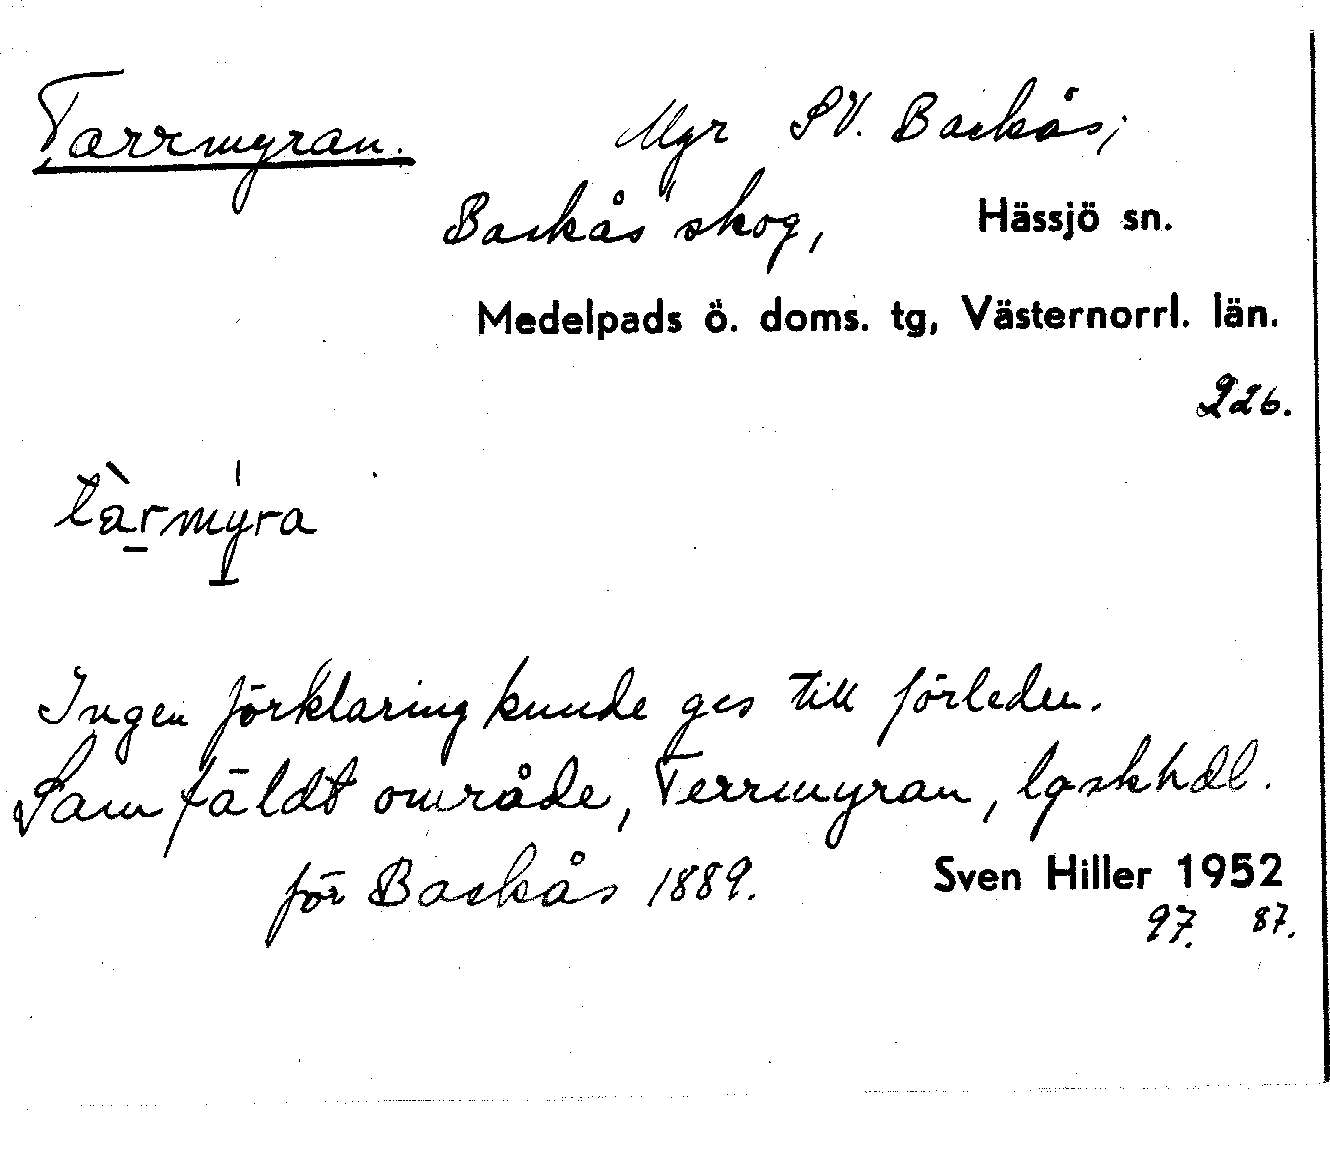 Tarrmyran. Myr SV. Backås;
Backås skog, Hässjö sn.
Medelpads ö. doms. tg, Västernorrl. län.
226.
tàrmy̍ra
Ingen förklaring kunde ges till förleden.
Samfäldt område, Terrmyran, lgskhdl.
för Backås 1889. Sven Hiller 1952
97. 87.